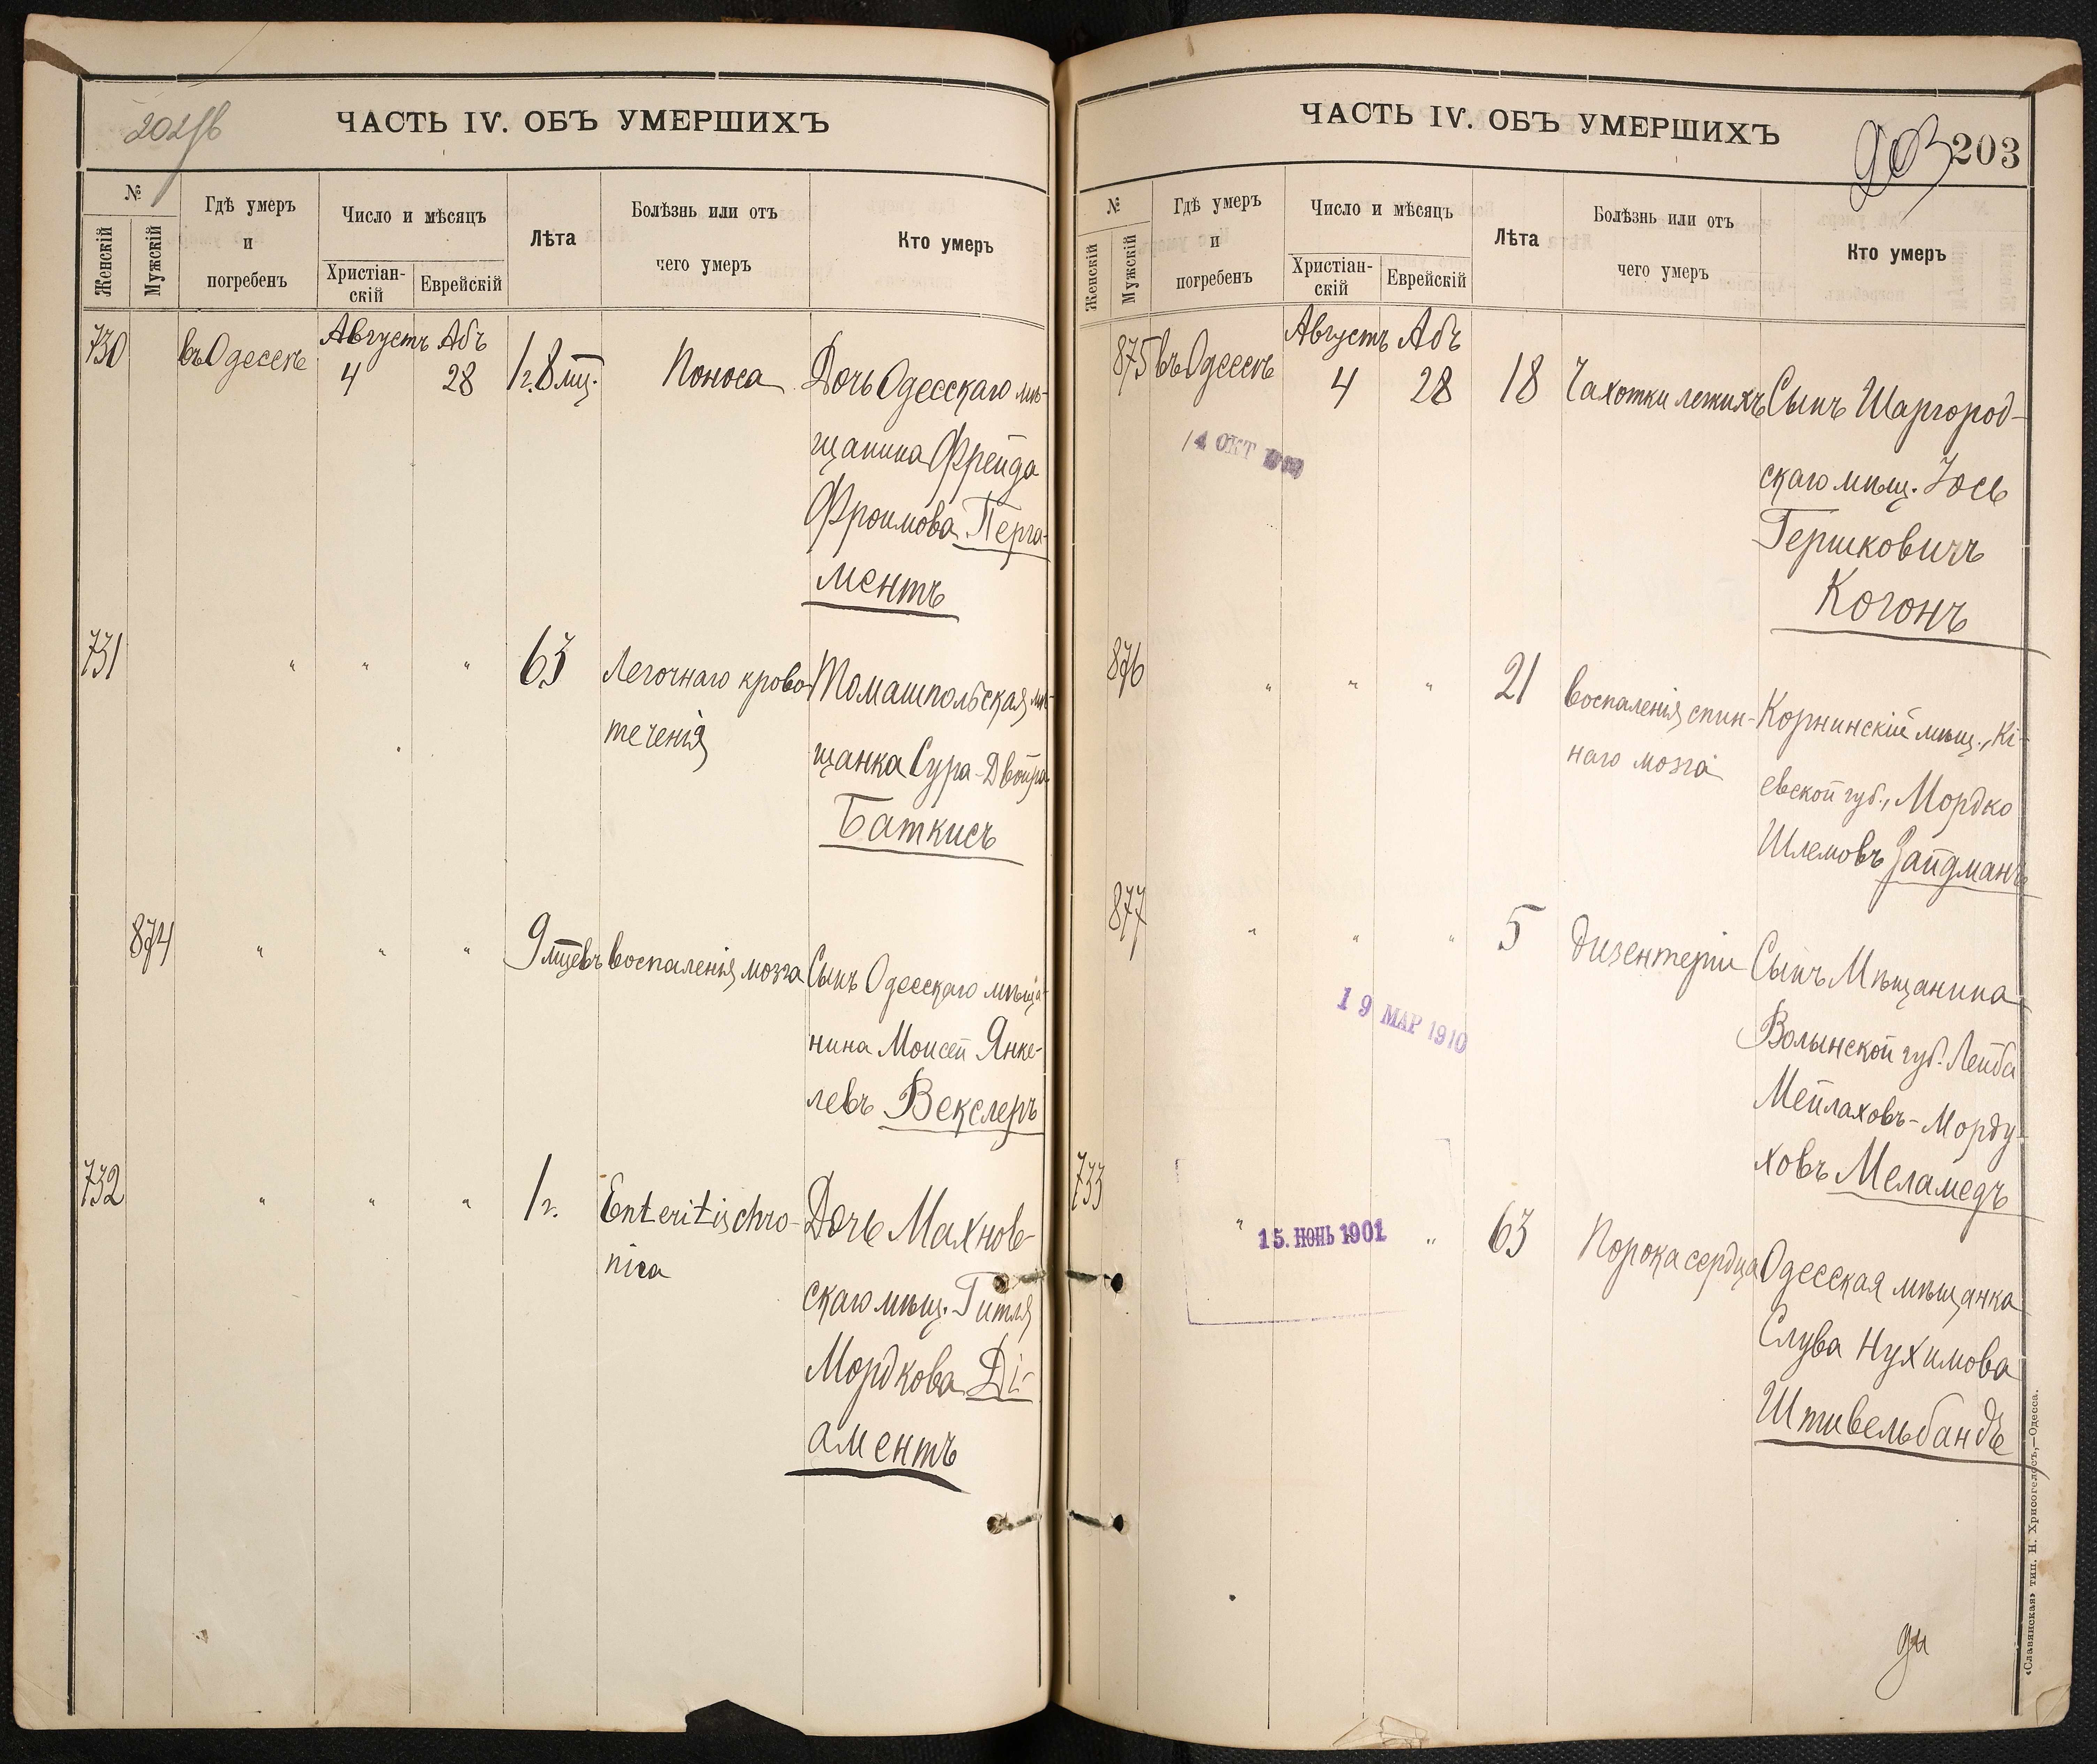 202 об
ЧАСТЬ IV. ОБЪ УМЕРШИХЪ
№
Женскій
Мужскій
Гдѣ умеръ
и
погребенъ
Число и мѣсяцъ
Христіан-
скій
Еврейскій
Лѣта
Болѣзнь или отъ
чего умеръ
Кто умеръ
730 въ Одессѣ Августъ 4 Абъ 28 1 г. 8 мц. Поноса Дочь Одесскаго мѣ-
щанина Фрейда
Фроимова Перга-
ментъ
731 " " " 63 Легочнаго крово- Томашпольская мѣ-
теченія щанка Сура-Двойра
Баткисъ
874 " " " 9 мцевъ воспаленія мозга Сынъ Одесскаго мѣща-
нина Моисей Янке-
левъ Векслеръ
732 " " " 1 г. Enteritis chro- Дочь Махнов-
nica скаго мѣщ. Гитля
Мордкова Ді-
аментъ
ЧАСТЬ IV. ОБЪ УМЕРШИХЪ
203 203
№
Женскій
Мужскій
Гдѣ умеръ
и
погребенъ
Число и мѣсяцъ
Христіан-
скій
Еврейскій
Лѣта
Болѣзнь или отъ
чего умеръ
Кто умеръ
875 въ Одессѣ Августъ 4 Абъ 28 18 Чахотки легкихъ Сынъ Шаргород-
14 ОКТ
скаго мѣщ. Іось
Гершковичъ
Когонъ
876 " " " 21 воспаленія спин- Корнинскій мѣщ., Кі-
наго мозга евской губ., Мордко
Шлемовъ Зайдманъ
877 " " " 5 дизентеріи Сынъ Мѣщанина
19 МАР 1910
Волынской губ. Лейба
Мейлаховъ-Морду-
ховъ Меламедъ
733 " 15. ІЮНЬ 1901 " 63 Порока сердца Одесская мѣщанка
Слува Нухимова
Штивельбандъ
«Славянская» тип. Н. Хрисогелосъ,—Одесса.